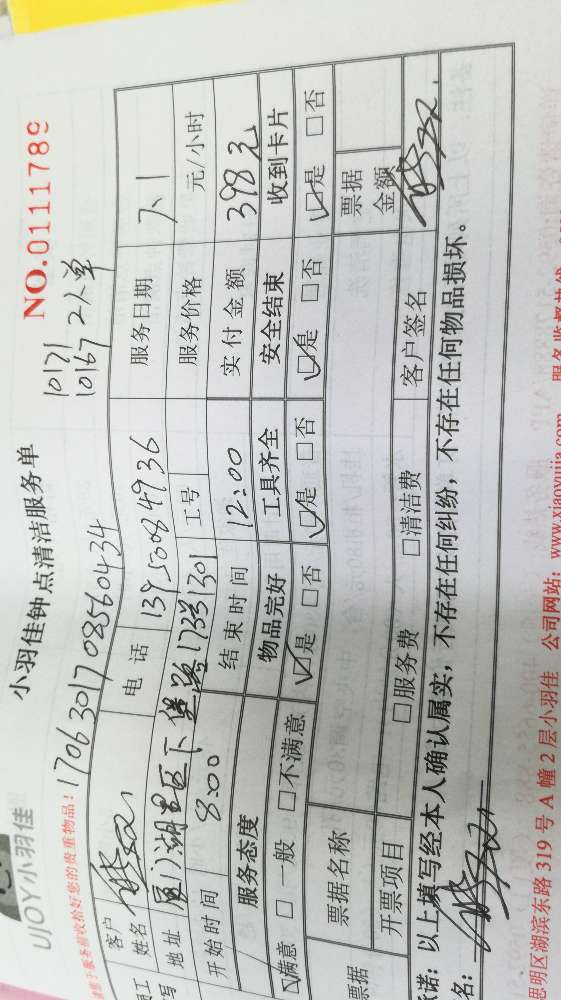 UJOY小羽佳
小羽佳钟点清洁服务单
NO.0111789
收拾好您的贵重物品!
17063017085560434
10171
10167 2人单
客户姓名
电话 13950084936
服务日期 7.1
地址
湖里区
1301
工号
服务价格 元/小时
开始时间 8:00
结束时间 12:00
实付金额 398元
服务态度
物品完好
工具齐全
安全结束
收到卡片
☑满意 □一般 □不满意
☑是 □否
☑是 □否
☑是 □否
☑是 □否
票据
票据名称
票据金额
开票项目
□服务费
□清洁费
客户签名
诺:以上填写经本人确认属实,不存在任何纠纷,不存在任何物品损坏。
名:
思明区湖滨东路 319 号 A 幢 2 层小羽佳 公司网站:www.xiaoyujia.com